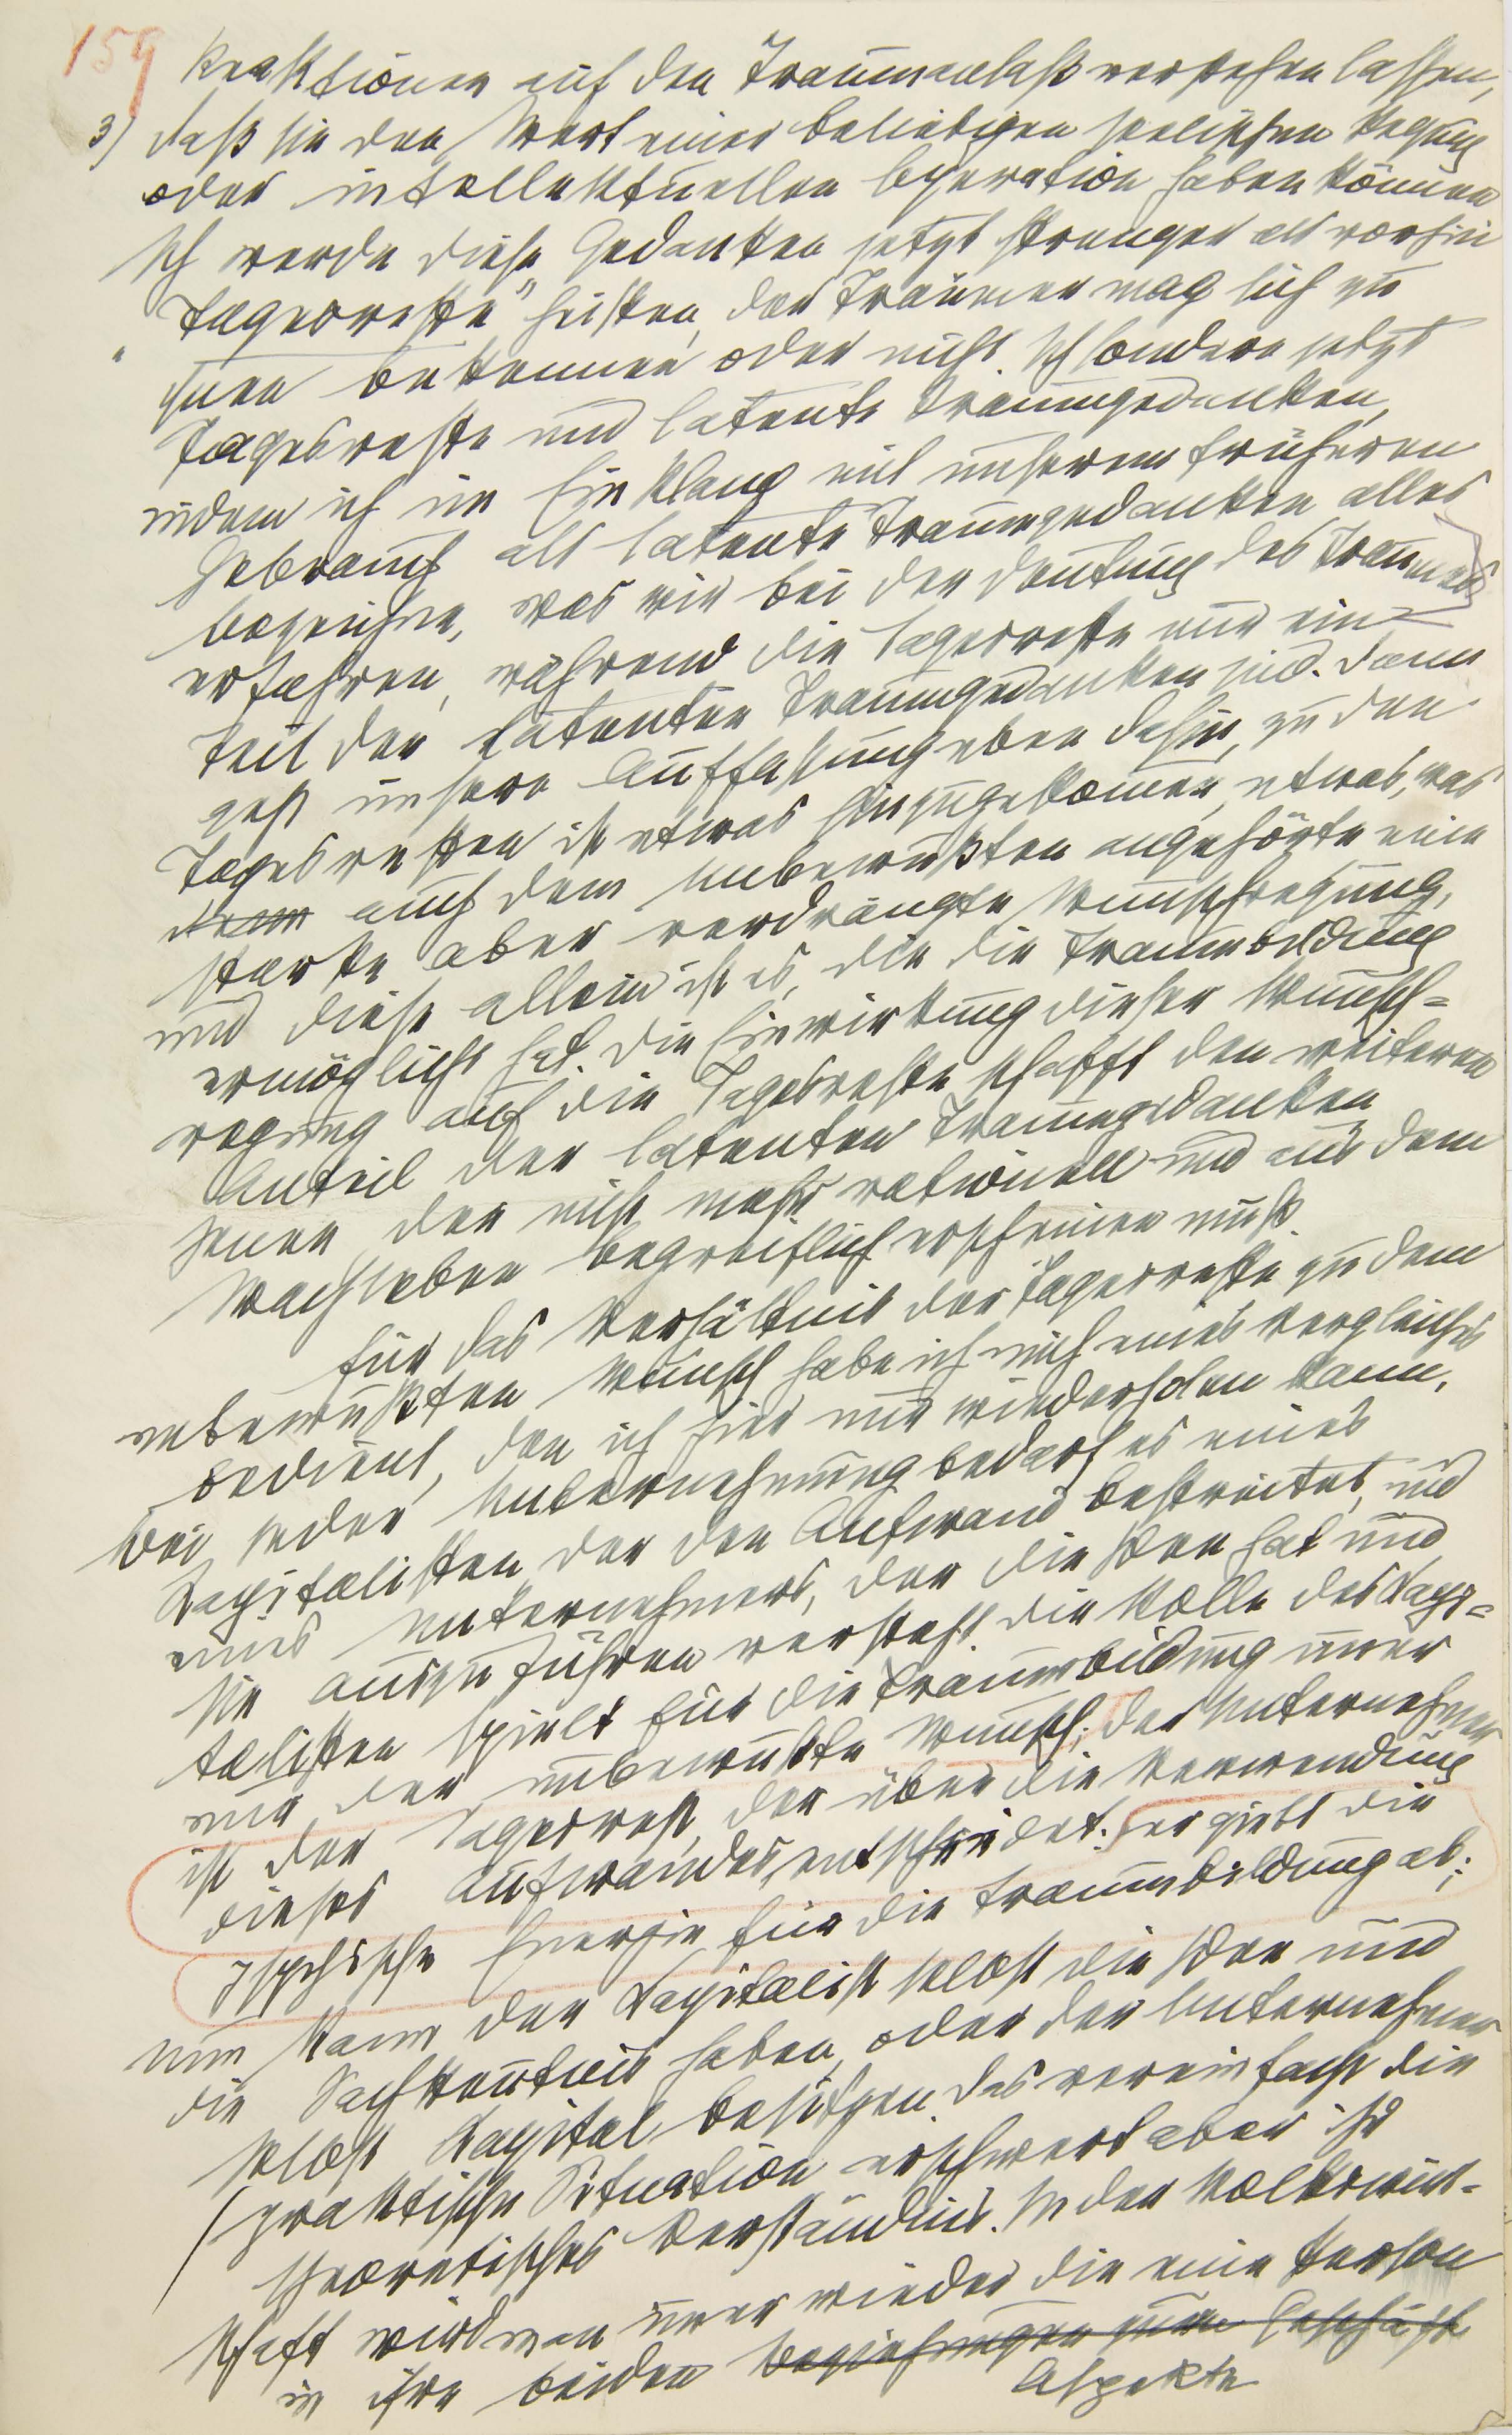 159
Reaktionen auf den Traumanlaß verstehen lassen,
3) daß sie den Wert einer beliebigen seelischen Regung
oder intellektuellen Operation haben können
Ich werde diese Gedanken jetzt strenger als vorhin
„Tagesreste" heißen, der Träumer mag sich zu
ihnen bekennen oder nicht. Ich sondere jetzt
Tagesreste und latente Traumgedanken,
indem ich im Einklang mit unserem früheren
Gebrauch als latente Traumgedanken alles
bezeichne, was wir bei der Deutung des Traumes
erfahren, während die Tagesreste nur ein
Teil der latenten Traumgedanken sind. Dann
geht unsere Auffassung eben dahin, zu den
Tagesresten ist etwas hinzugekommen, etwas, was
auch dem Unbewußten angehörte eine
starke aber verdrängte Wunschregung,
und diese allein ist es, die die Traumbildung
ermöglicht hat. Die Einwirkung dieser Wunsch=
regung auf die Tagesreste schafft den weiteren
Anteil der latenten Traumgedanken
jenen der nicht mehr rationell und aus dem
Wachleben begreiflich erscheinen muß.
Für das Verhältnis der Tagesreste zu dem
unbewußten Wunsch habe ich mich eines Vergleiches
bedient, den ich hier nur wiederholen kann.
Bei jeder Unternehmung bedarf es eines
Kapitalisten der den Aufwand bestreitet, und
eines Unternehmers, der die Idee hat und
sie auszuführen versteht. Die Rolle des Kapi=
talisten spielt für die Traumbildung immer
nur der unbewußte Wunsch; der Unternehmer
ist der Tagesrest, der über die Verwendung
dieses Aufwandes entscheidet. er giebt die
psychische Energie für die Traumbildung ab;
Nun kann der Kapitalist selbst die Idee und
die Sachkenntnis haben, oder der Unternehmer
selbst Kapital besitzen. Das vereinfacht die
praktische Situation erschwert aber ihr
theoretisches Verständnis. In der Volkswirt-
schaft wird man immer wieder die eine Person
in ihre beiden Beziehungen zum Geschäft
Aspekte